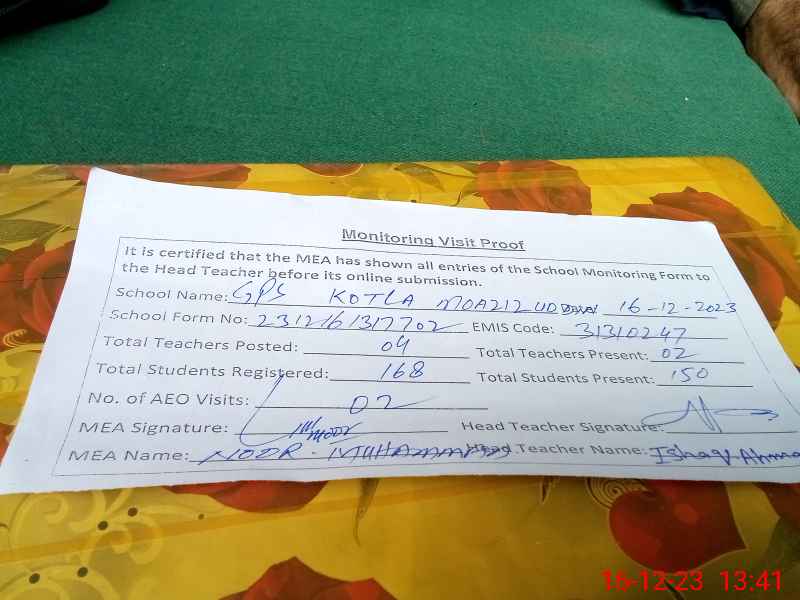 Monitoring Visit Proof
It is certified that the MEA has shown all entries of the School Monitoring Form to
the Head Teacher before its online submission.
School Name: GPS KOTLA MOAZIZ UDDIN 16-12-2023
School Form No: 2312161317702 EMIS Code: 31310247
Total Teachers Posted: 04 Total Teachers Present: 02
Total Students Registered: 168 Total Students Present: 150
No. of AEO Visits: 02
MEA Signature: Head Teacher Signature:
MEA Name: NOOR MUHAMMAD Head Teacher Name: Ishaq Ahma
16-12-23 13:41